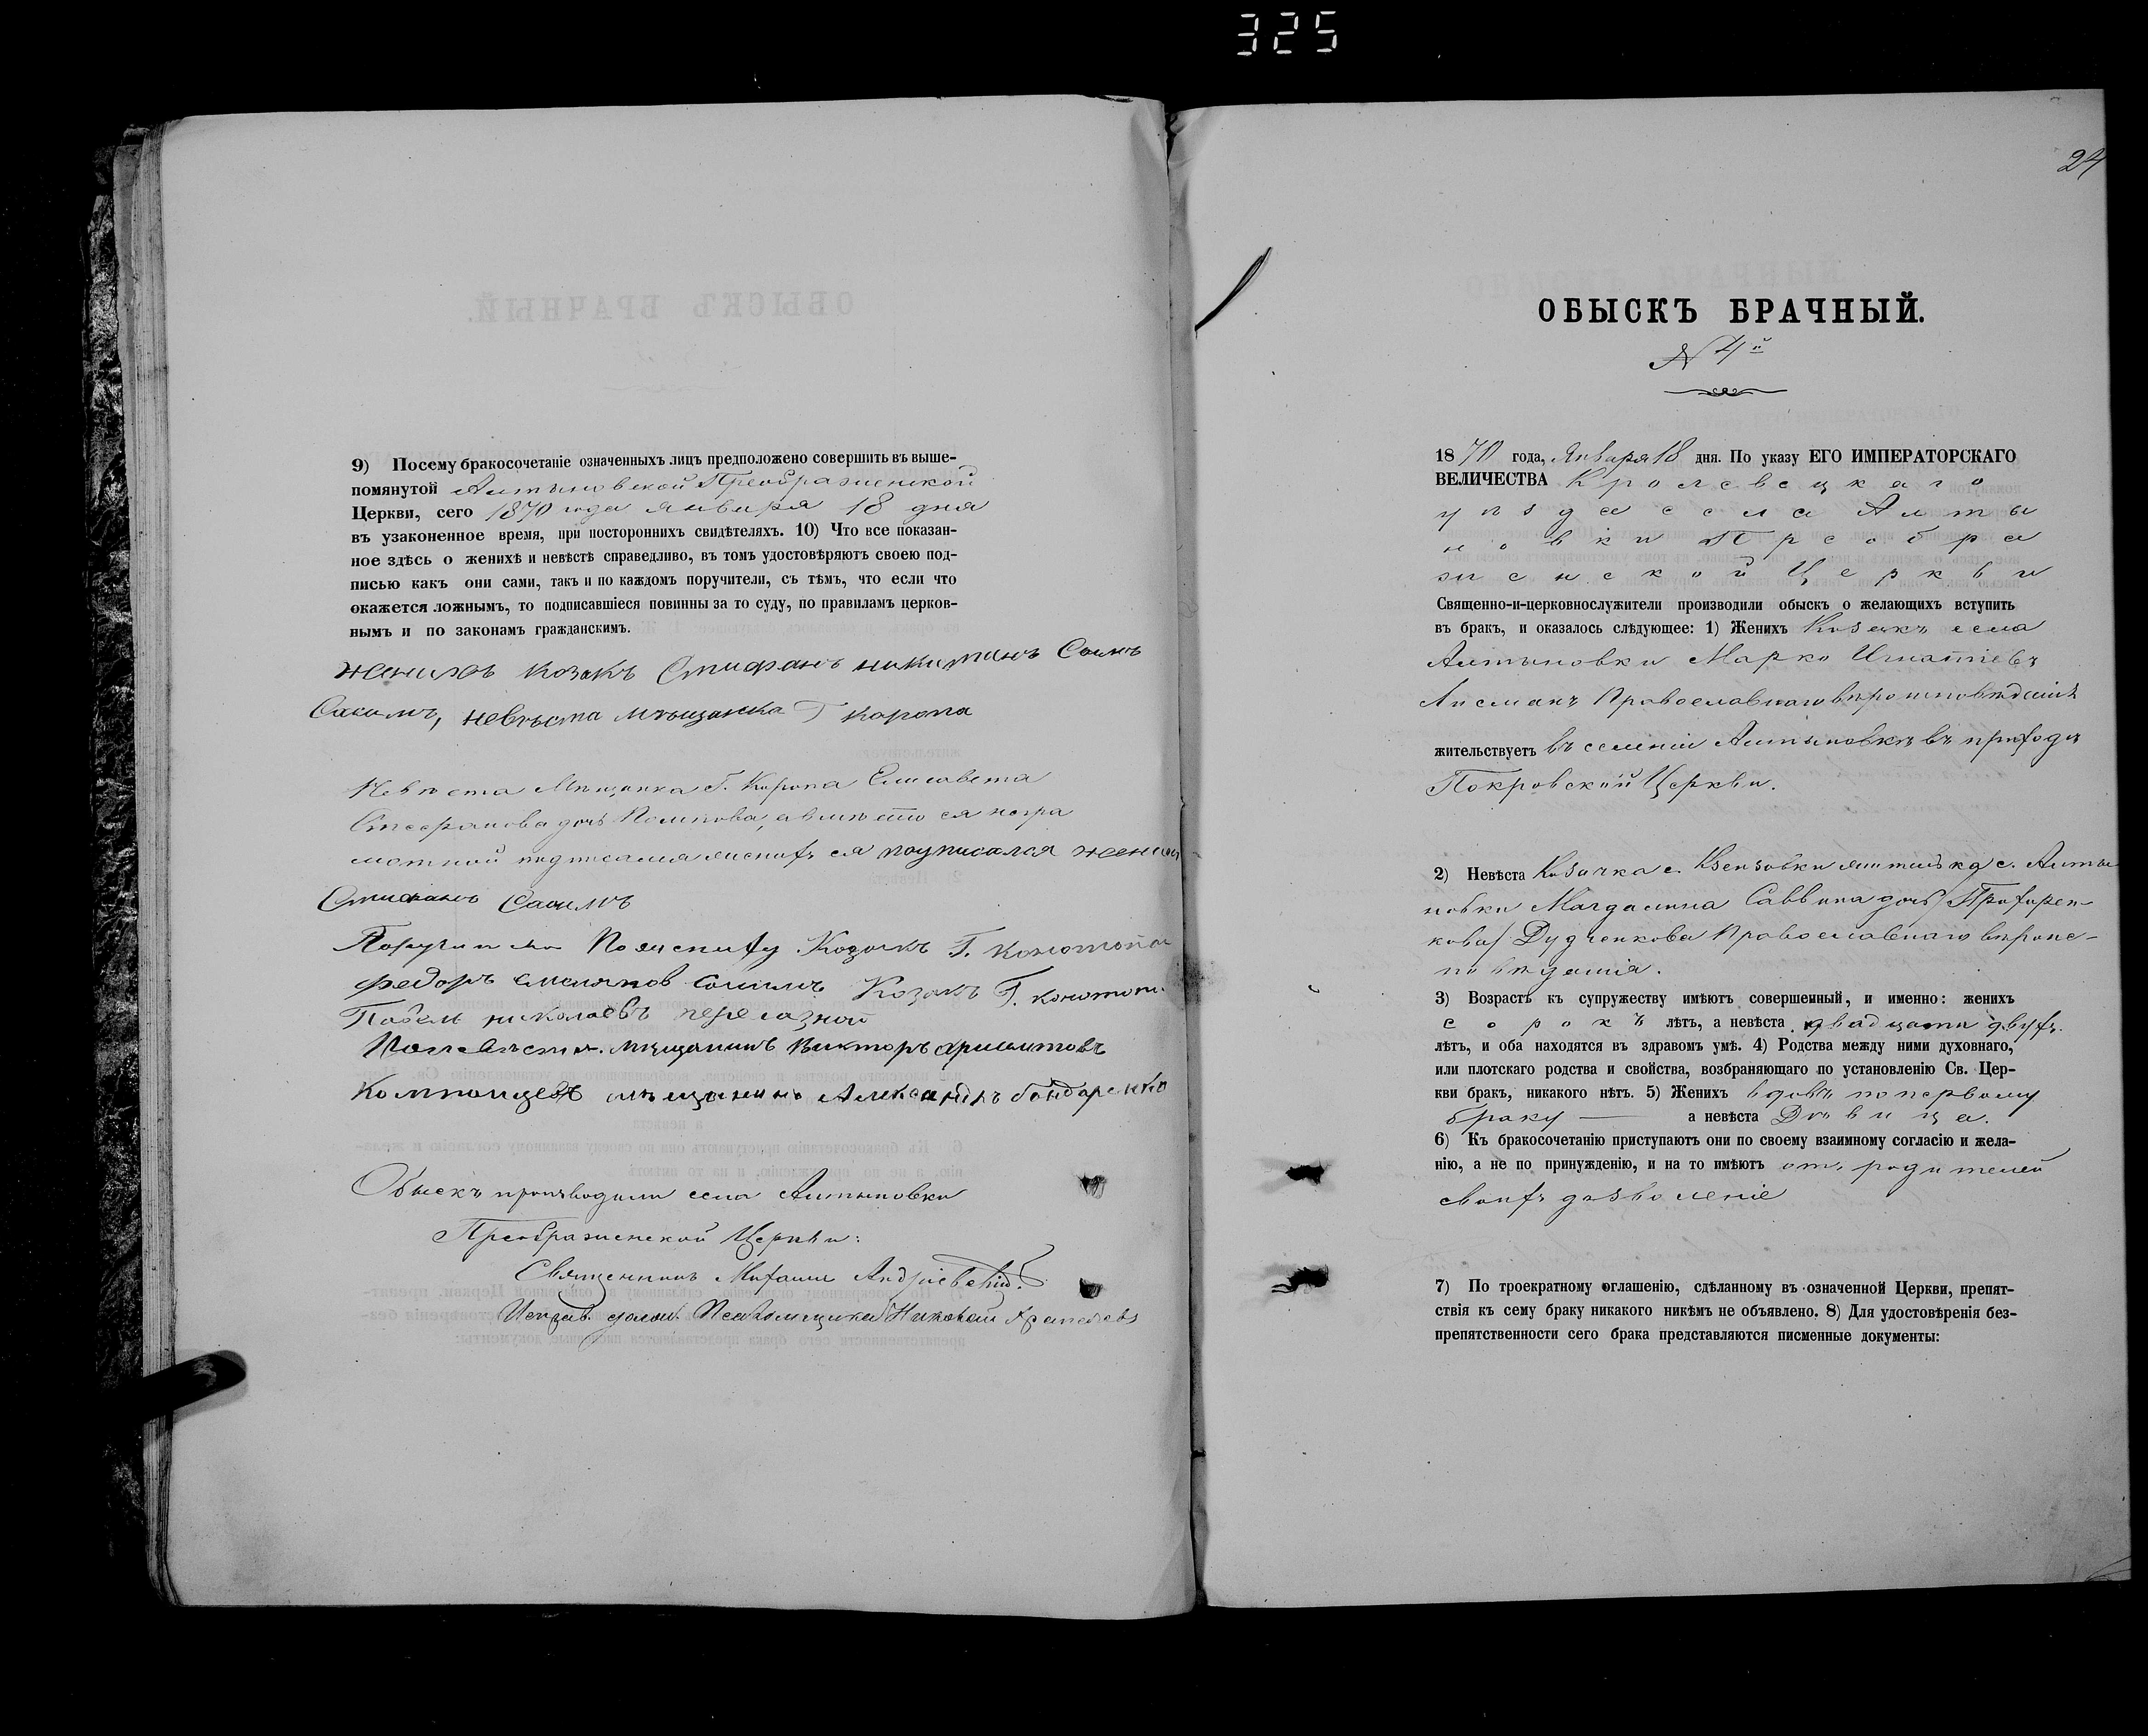 325
9) Посему бракосочетаніе означенныхъ лицъ предположено совершить въ выше-
помянутой Алтыновской Преображенской
Церкви, сего 1870 года Января 18 дня
въ узаконенное время, при постороннихъ свидѣтеляхъ. 10) Что все показан-
ное здѣсь о женихѣ и невѣстѣ справедливо, въ томъ удостовѣряютъ своею под-
писью какъ они сами, такъ и по каждомъ поручители, съ тѣмъ, что если что
окажется ложнымъ, то подписавшіеся повинны за то суду, по правиламъ церков-
нымъ и по законамъ гражданскимъ.
женихъ козакъ Стифанъ никитинъ
невѣста мѣщанка Г коропа
Невѣста Мѣщанка г. Коропа Елисавета
дочь а вмѣсто ея негра
мотной подписался женихъ ея подписался жених
Стифанъ
По женихy Козакъ Г. конотопа
Федоръ Козакъ Г. конотоп.
Павелъ николаевъ
По невѣстѣ. мѣщанинъ Викторъ
мѣщанинъ Александръ бондаренко
Обыскъ производили села Алтыновки
Преображенской Церкви:
Священникъ Михаилъ Андріевскій
Исправ. долж. Псаломщика Николай
24
ОБЫСКЪ БРАЧНЫЙ.
N 4й
1870 года, Января 18 дня. По указу ЕГО ИМПЕРАТОРСКАГО
ВЕЛИЧЕСТВА Кролевецкаго
уѣзда села Алты
новки Преобра
женской Церкви
Священно-и-церковнослужители производили обыскъ о желающихъ вступить
въ бракъ, и оказалось слѣдующее: 1) Женихъ Козакъ села
Алтыновки Марко Игнатіевъ
Лисманъ Православнаго вѣроисповѣданія
жительствуетъ въ селеніи Алтыновкѣ въ приходѣ
Покровской Церкви.
2) Невѣста Козачка с. жителька с. Алты
новки Магдалина Саввина дочь Прохорен-
кова Дудченкова Православнаго вѣроис-
повѣданія.
3) Возрастъ къ супружеству имѣютъ совершенный, и именно: женихъ
сорокъ лѣтъ, а невѣста двадцати двухъ
лѣтъ, и оба находятся въ здравомъ умѣ. 4) Родства между ними духовнаго,
или плотскаго родства и свойства, возбраняющаго по установленію Св. Цер-
кви бракъ, никакого нѣтъ. 5) Женихъ вдовъ по первому
браку а невѣста Дѣвица.
6) Къ бракосочетанію приступаютъ они по своему взаимному согласію и жела-
нію, а не по принужденію, и на то имѣютъ отъ родителей
своихъ дозволеніе
7) По троекратному оглашенію, сдѣланному въ означенной Церкви, препят-
ствія къ сему браку никакого никѣмъ не объявлено. 8) Для удостовѣренія без-
препятственности сего брака представляются писменные документы: